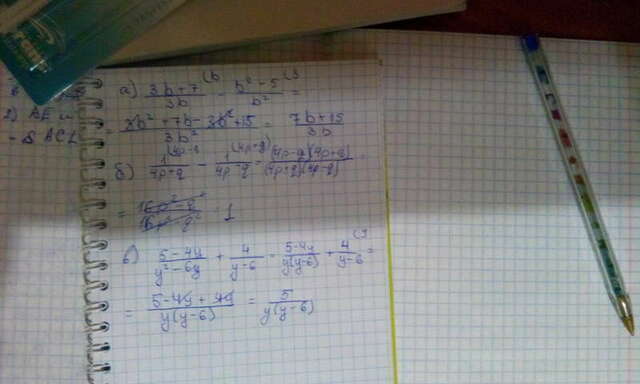 а) (3b+7)/3b (b - (b²-5)/b² (3 =
= (3b²+7b-3b²+15)/3b² = (7b+15)/3b
б) 1/(4p+q) (4p-q - 1/(4p-q) (4p+q) = (4p-q)(4p+q)/(4p+q)(4p-q) =
= (16p²-q²)/(16p²-q²) = 1
в) (5-4y)/(y²-6y) + 4/(y-6) = (5-4y)/y(y-6) + 4/(y-6) (y =
= (5-4y+4y)/y(y-6) = 5/y(y-6)
2)